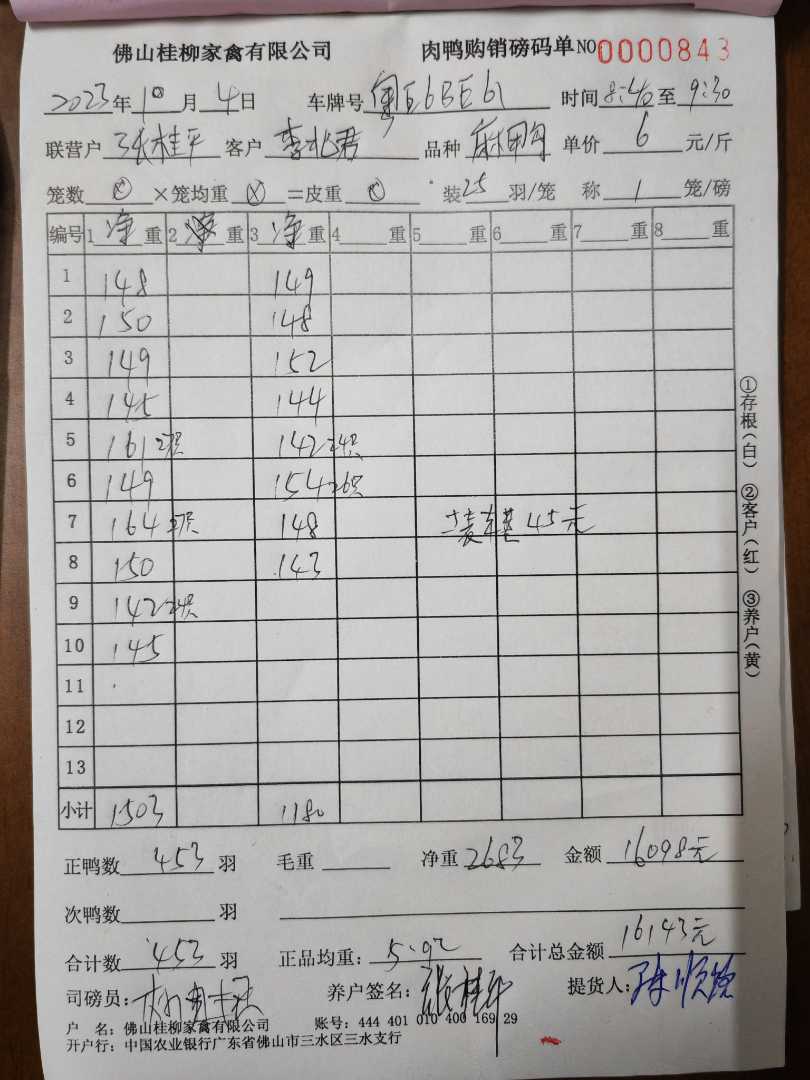 佛山桂柳家禽有限公司 肉鸭购销磅码单 NO 0000843
2023年10月4日 车牌号 粤E6BE61 时间 8:40 至 9:30
联营户 张桂平 客户 李兆君 品种 麻鸭 单价 6 元/斤
笼数 ×笼均重 =皮重 装25羽/笼 称 1 笼/磅
编号 1 净 重 2 重 3 净 重 4 重 5 重 6 重 7 重 8 重
1 148 149
2 150 148
3 149 152
4 145 144
5 161 27只 142 24只
6 149 154 26只
7 164 27只 148 装车费45元
8 150 143
9 142 24只
10 145
11
12
13
小计 1503 1180
正鸭数 453 羽 毛重 净重 2683 金额 16098元
次鸭数 羽
合计数 453 羽 正品均重: 5.92 合计总金额 16143元
司磅员: 养户签名: 张桂平 提货人:
户 名: 佛山桂柳家禽有限公司 账号: 444 401 010 400 169 29
开户行: 中国农业银行广东省佛山市三水区三水支行
①存根(白) ②客户(红) ③养户(黄)